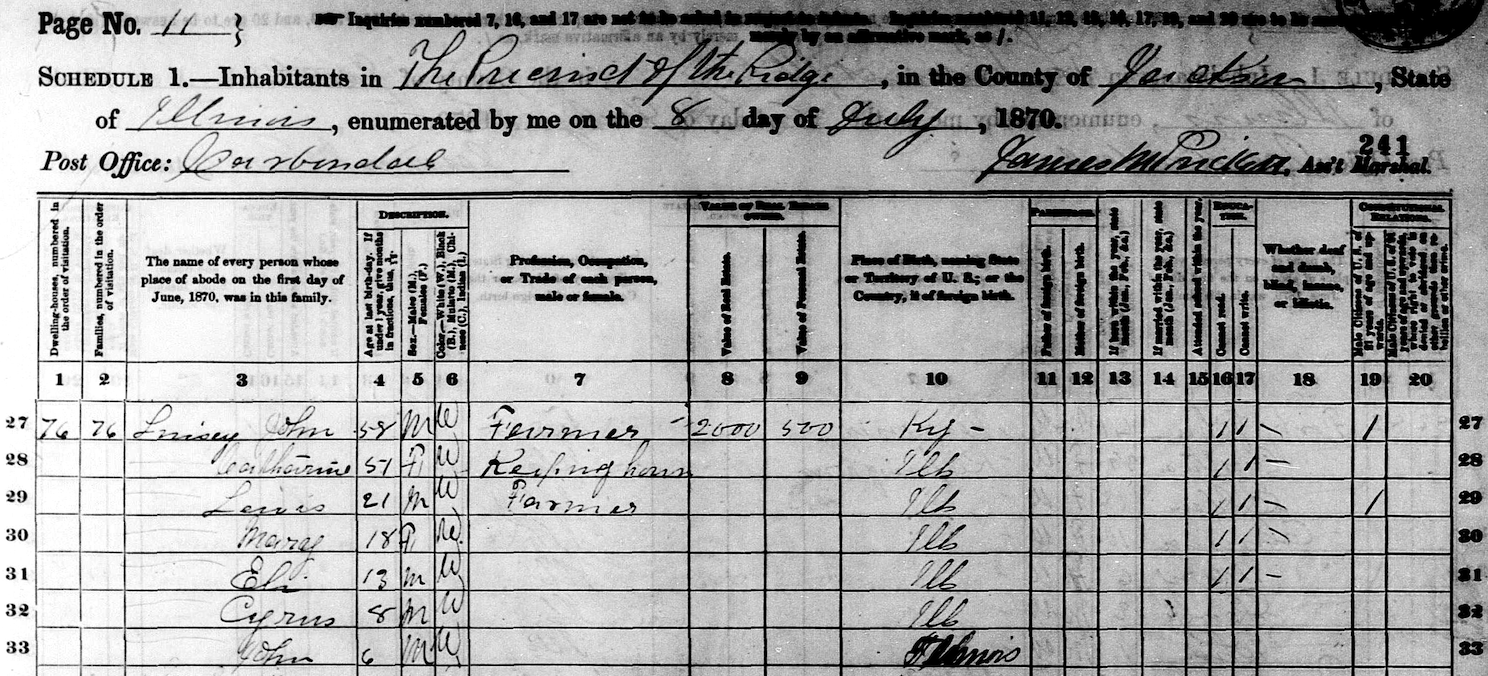 Page No. 11 } Inquiries numbered 7, 16, and 17 are not to be asked in respect to infants. Inquiries numbered 11, 12, 15, 16, 17, 19, and 20 are to be
merely by an affirmative mark, as /.
SCHEDULE 1.—Inhabitants in The Precinct of the Ridge, in the County of Jackson, State
of Illinois, enumerated by me on the 8 day of July, 1870.
241
Post Office: Carbondale James M Prickett, Ass't Marshal.
Dwelling-houses, numbered in the order of visitation.
Families, numbered in the order of visitation.
The name of every person whose place of abode on the first day of June, 1870, was in this family.
DESCRIPTION.
Age at last birth-day. If under 1 year, give months in fractions, thus,
Sex.—Males (M.), Females (F.)
Color.—White (W.), Black (B.), Mulatto (M.), Chinese (C.), Indian (I.)
Profession, Occupation, or Trade of each person, male or female.
VALUE OF REAL ESTATE OWNED.
Value of Real Estate.
Value of Personal Estate.
Place of Birth, naming State or Territory of U. S.; or the Country, if of foreign birth.
PARENTAGE.
Father of foreign birth.
Mother of foreign birth.
If born within the year, state month (Jan., Feb., &c.)
If married within the year, state month (Jan., Feb., &c.)
Attended school within the year.
EDUCATION.
Cannot read.
Cannot write.
Whether deaf and dumb, blind, insane, or idiotic.
CONSTITUTIONAL RELATIONS.
Male Citizens of U. S. of 21 years of age and upwards.
Male Citizens of U. S. of 21 years of age and upwards, whose right to vote is denied or abridged on other grounds than rebellion or other crime.
1 2 3 4 5 6 7 8 9 10 11 12 13 14 15 16 17 18 19 20
27 76 76 Linsey John 58 M W Farmer 2000 500 Ky - 1 1 - 1 27
28 Catharine 51 F W Keeping house Ills 1 1 - 28
29 Lewis 21 M W Farmer Ills 1 1 - 1 29
30 Mary 18 F W Ills 1 1 - 30
31 Eli 13 M W Ills 1 1 - 31
32 Cyrus 8 M W Ills 32
33 John 6 M W Illinois 33